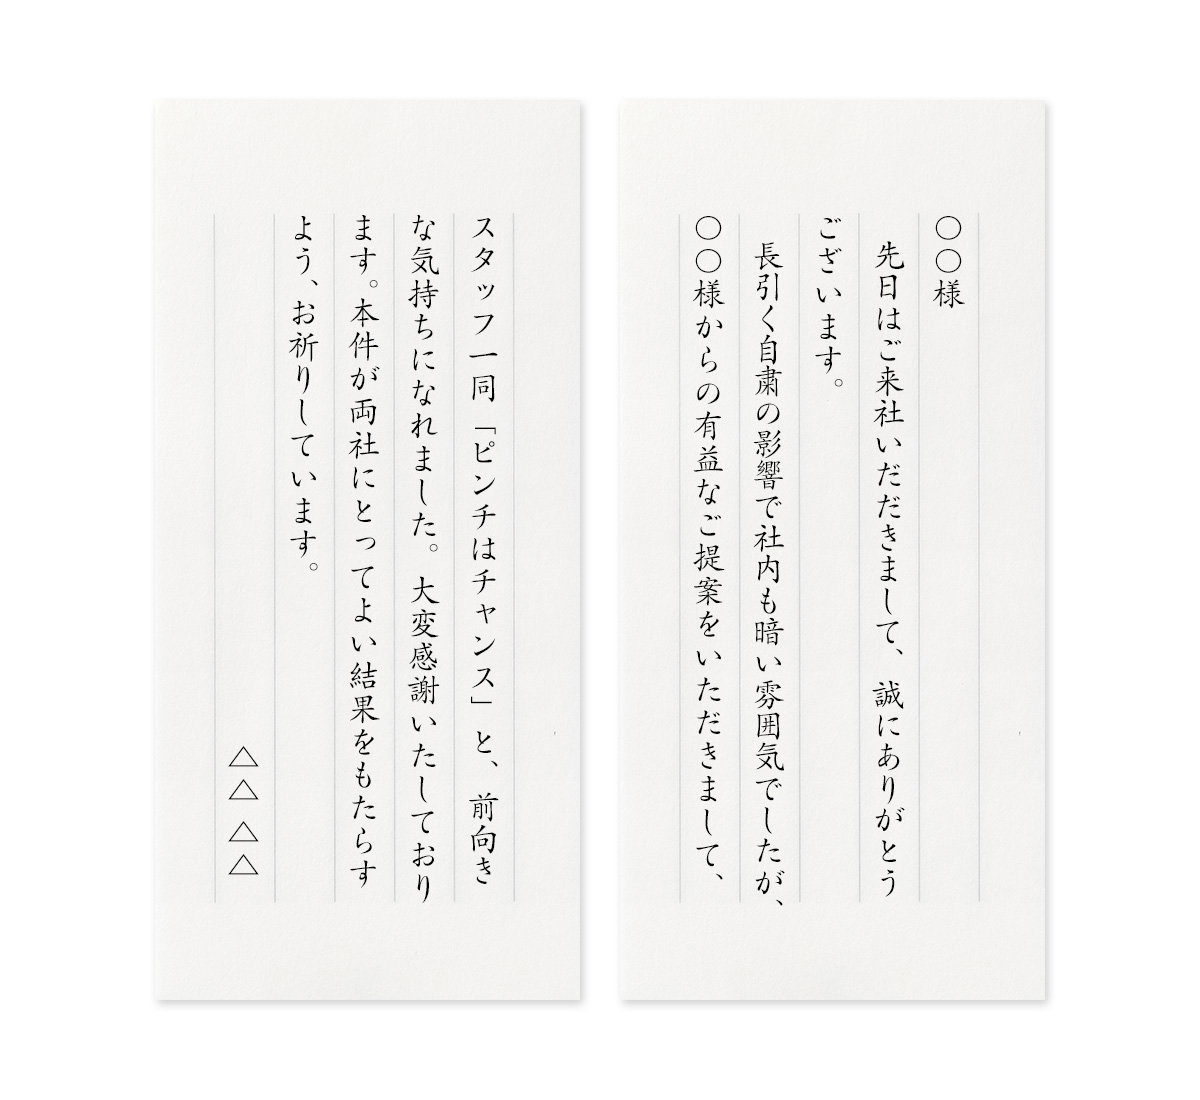 〇〇様
先日はご来社いだだきまして、誠にありがとう
ございます。
長引く自粛の影響で社内も暗い雰囲気でしたが、
〇〇様からの有益なご提案をいただきまして、
スタッフ一同「ピンチはチャンス」と、前向き
な気持ちになれました。大変感謝いたしており
ます。本件が両社にとってよい結果をもたらす
よう、お祈りしています。
△△△△